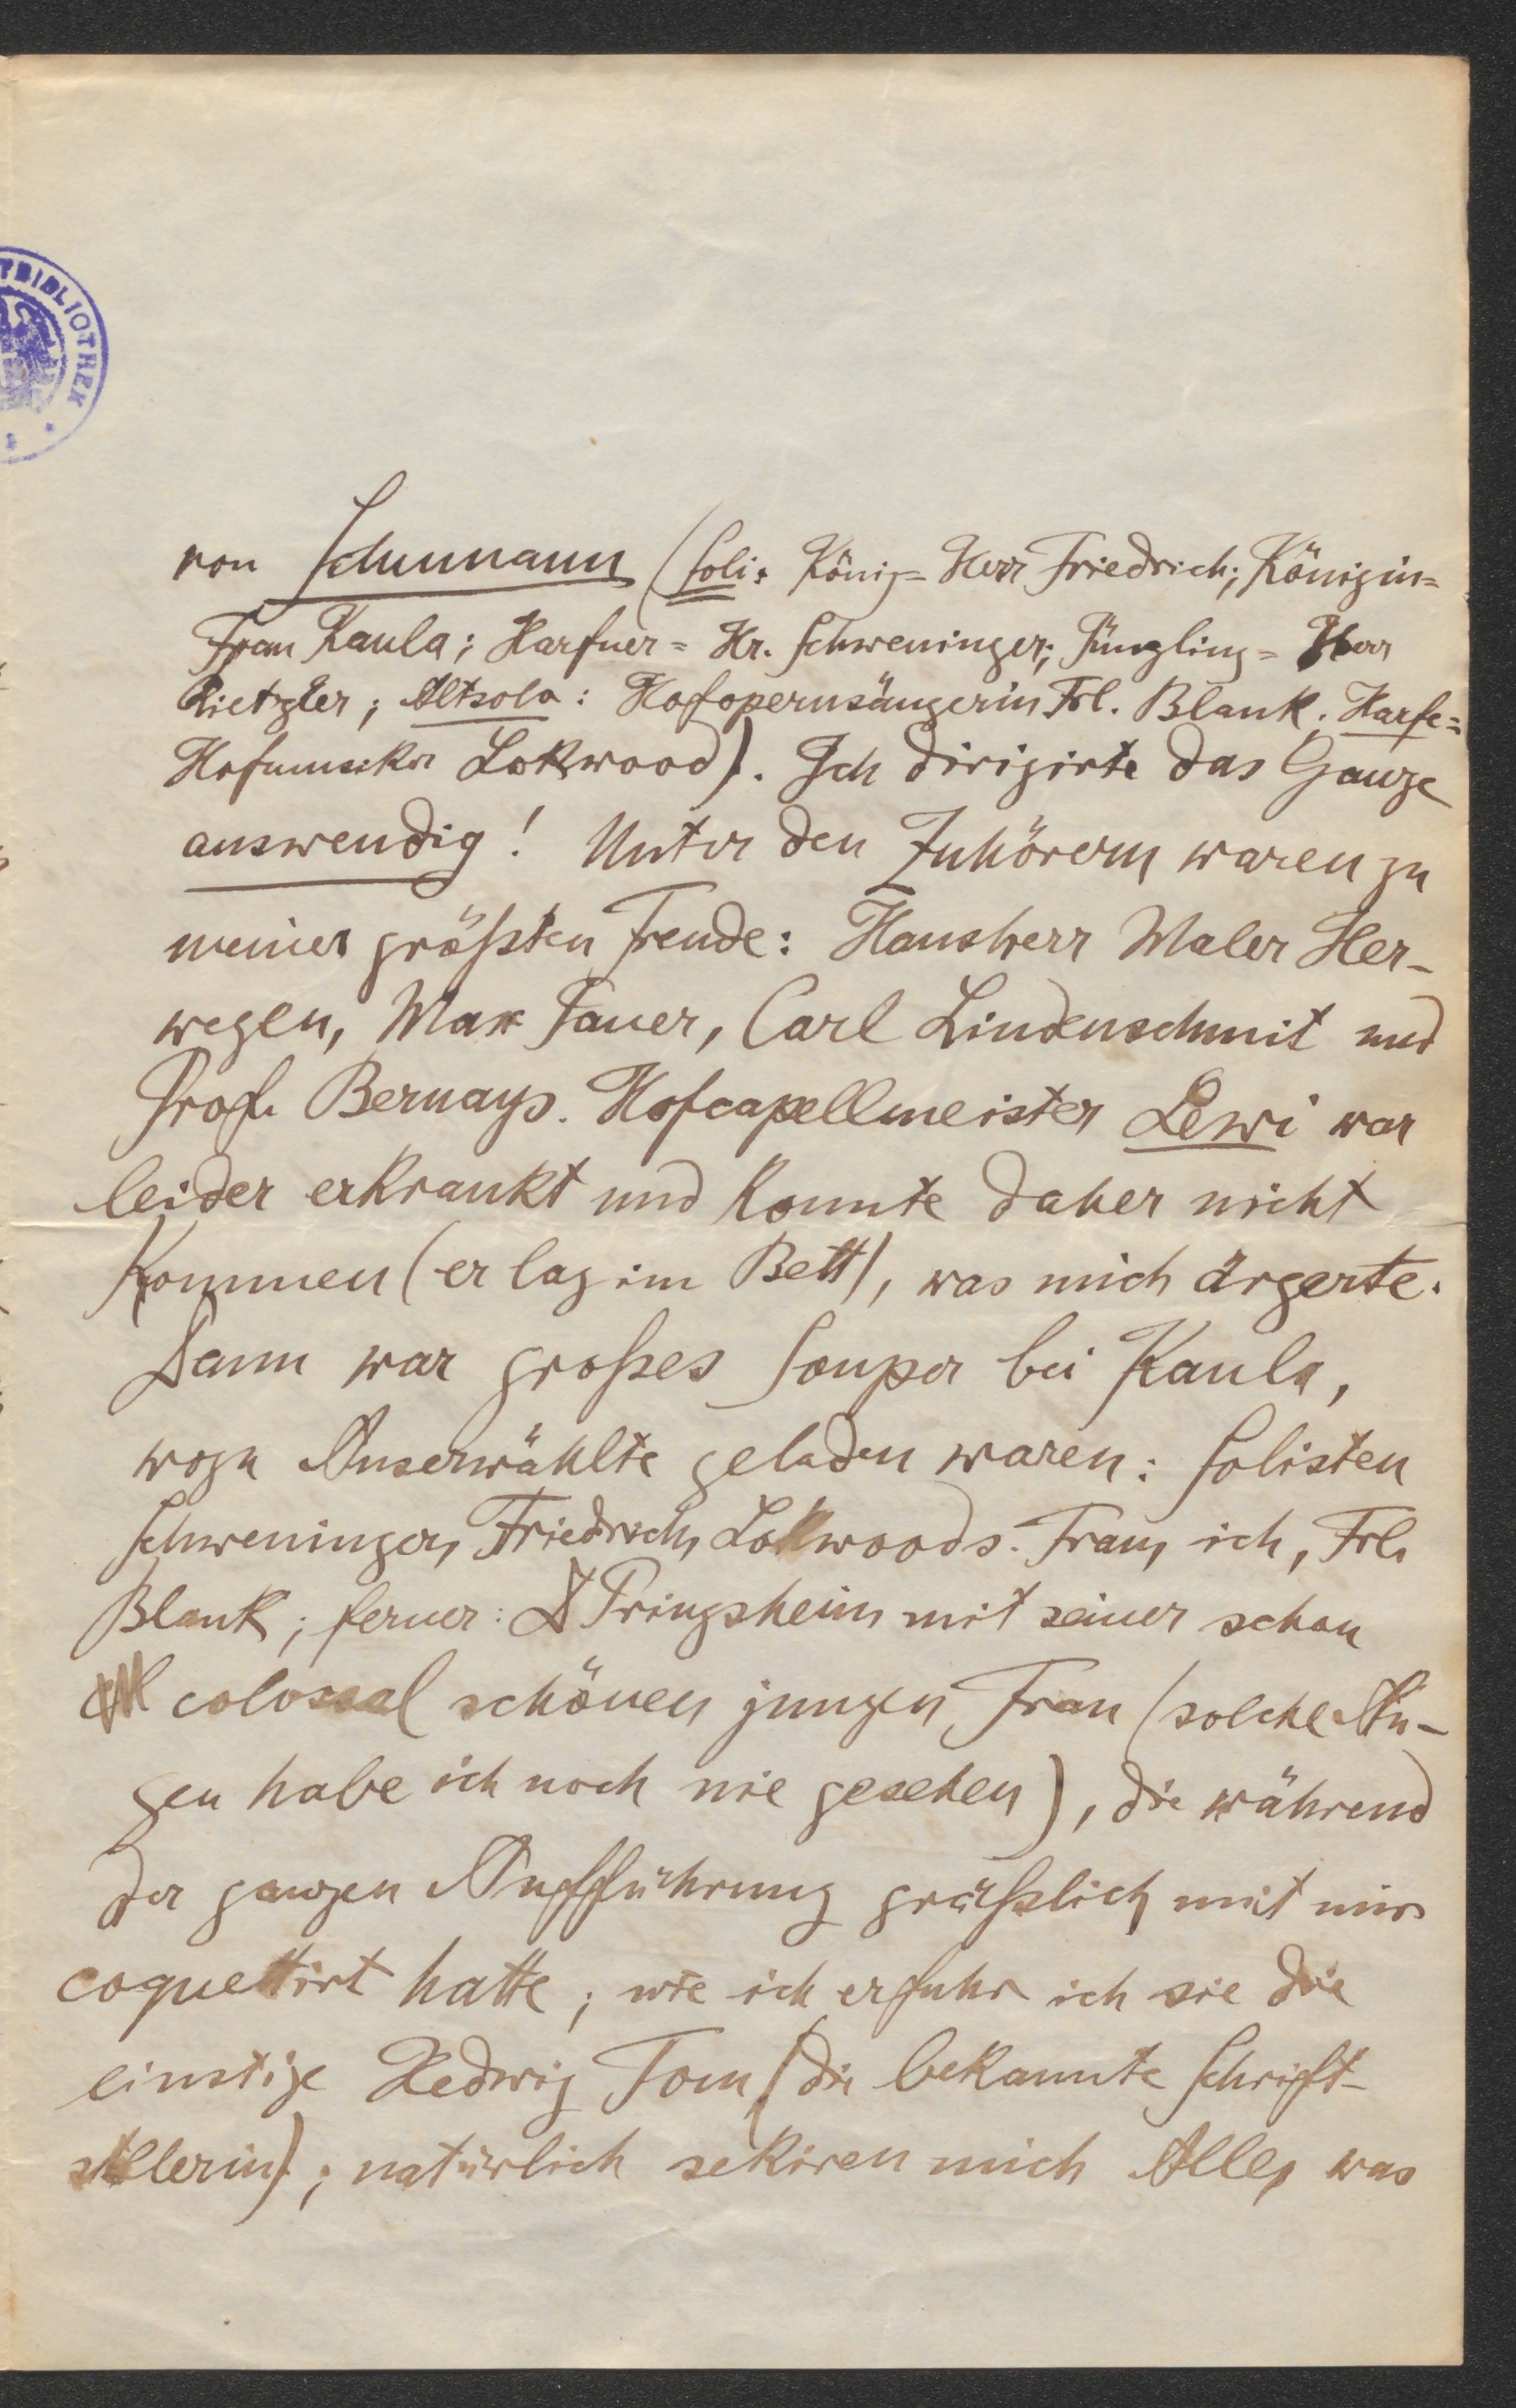 TBIBLIOTHEK
von Schumann (Soli: König = Herr Friedrich; Königin =
Frau Kaula; Harfner = Hr. Schweninger; Jüngling = Herr
Lietzler; Altsolo: Hofopernsängerin Frl. Blank. Harfe =
Hofmusiker Lokwood). Ich dirigirte das Ganze
auswendig! Unter den Zuhörern waren zu
meiner größten Freude: Hausherr Maler Her-
wegen, Max Pauer, Carl Lindenschmit und
Prof. Bernays. Hofcapellmeister Lewi war
leider erkrankt und konnte daher nicht
kommen (er lag im Bett), was mich ärgerte.
Dann war großes Souper bei Kaula,
wozu Auserwählte geladen waren: Solisten
Schweninger, Friedrich, Lokwoods. Frau, ich, Frl.
Blank; ferner: Dr Pringsheim mit seiner schon
colossal schönen jungen Frau (solche Au-
gen habe ich noch nie gesehen), die während
der ganzen Aufführung gräßlich mit mir
coquettirt hatte; wie ich erfuhr ich sie die
einstige Hedwig Dom (die bekannte Schrift-
stellerin); natürlich sekiren mich Alle, was